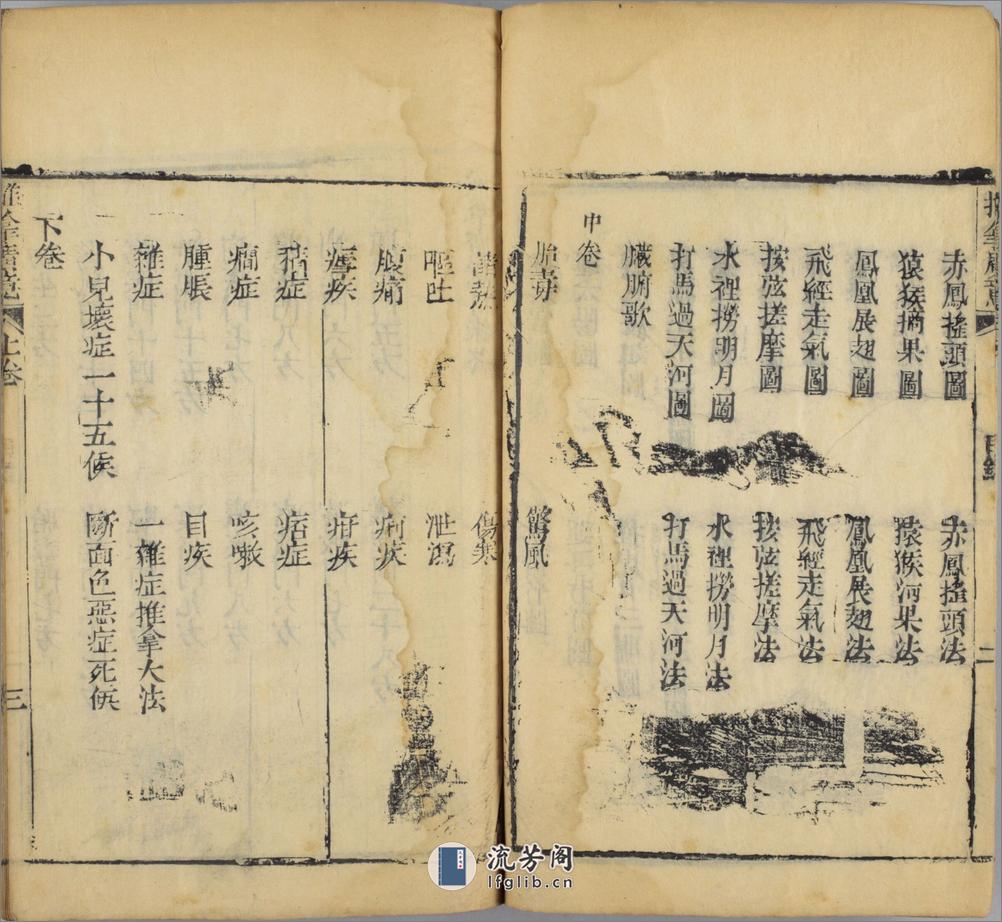 赤鳳搖頭圖
赤鳳搖頭法
猿猴摘果圖
猿猴河果法
鳳凰展翅圖
鳳凰展翅法
飛經走氣圖
飛經走氣法
按弦搓摩圖
按弦搓摩法
水裡撈明月圖
水裡撈明月法
打馬過天河圖
打馬過天河法
臟腑歌
中卷
胎毒
驚風
諸熱
傷寒
嘔吐
泄瀉
腹痛
痢疾
瘧疾
疳疾
積症
痞症
癇症
咳嗽
腫脹
目疾
雜症
一雜症推拿大法
小兒壞症一十五候
斷面色惡症死候
下卷
上卷
三
目錄
二
流芳阁
lfglib.cn